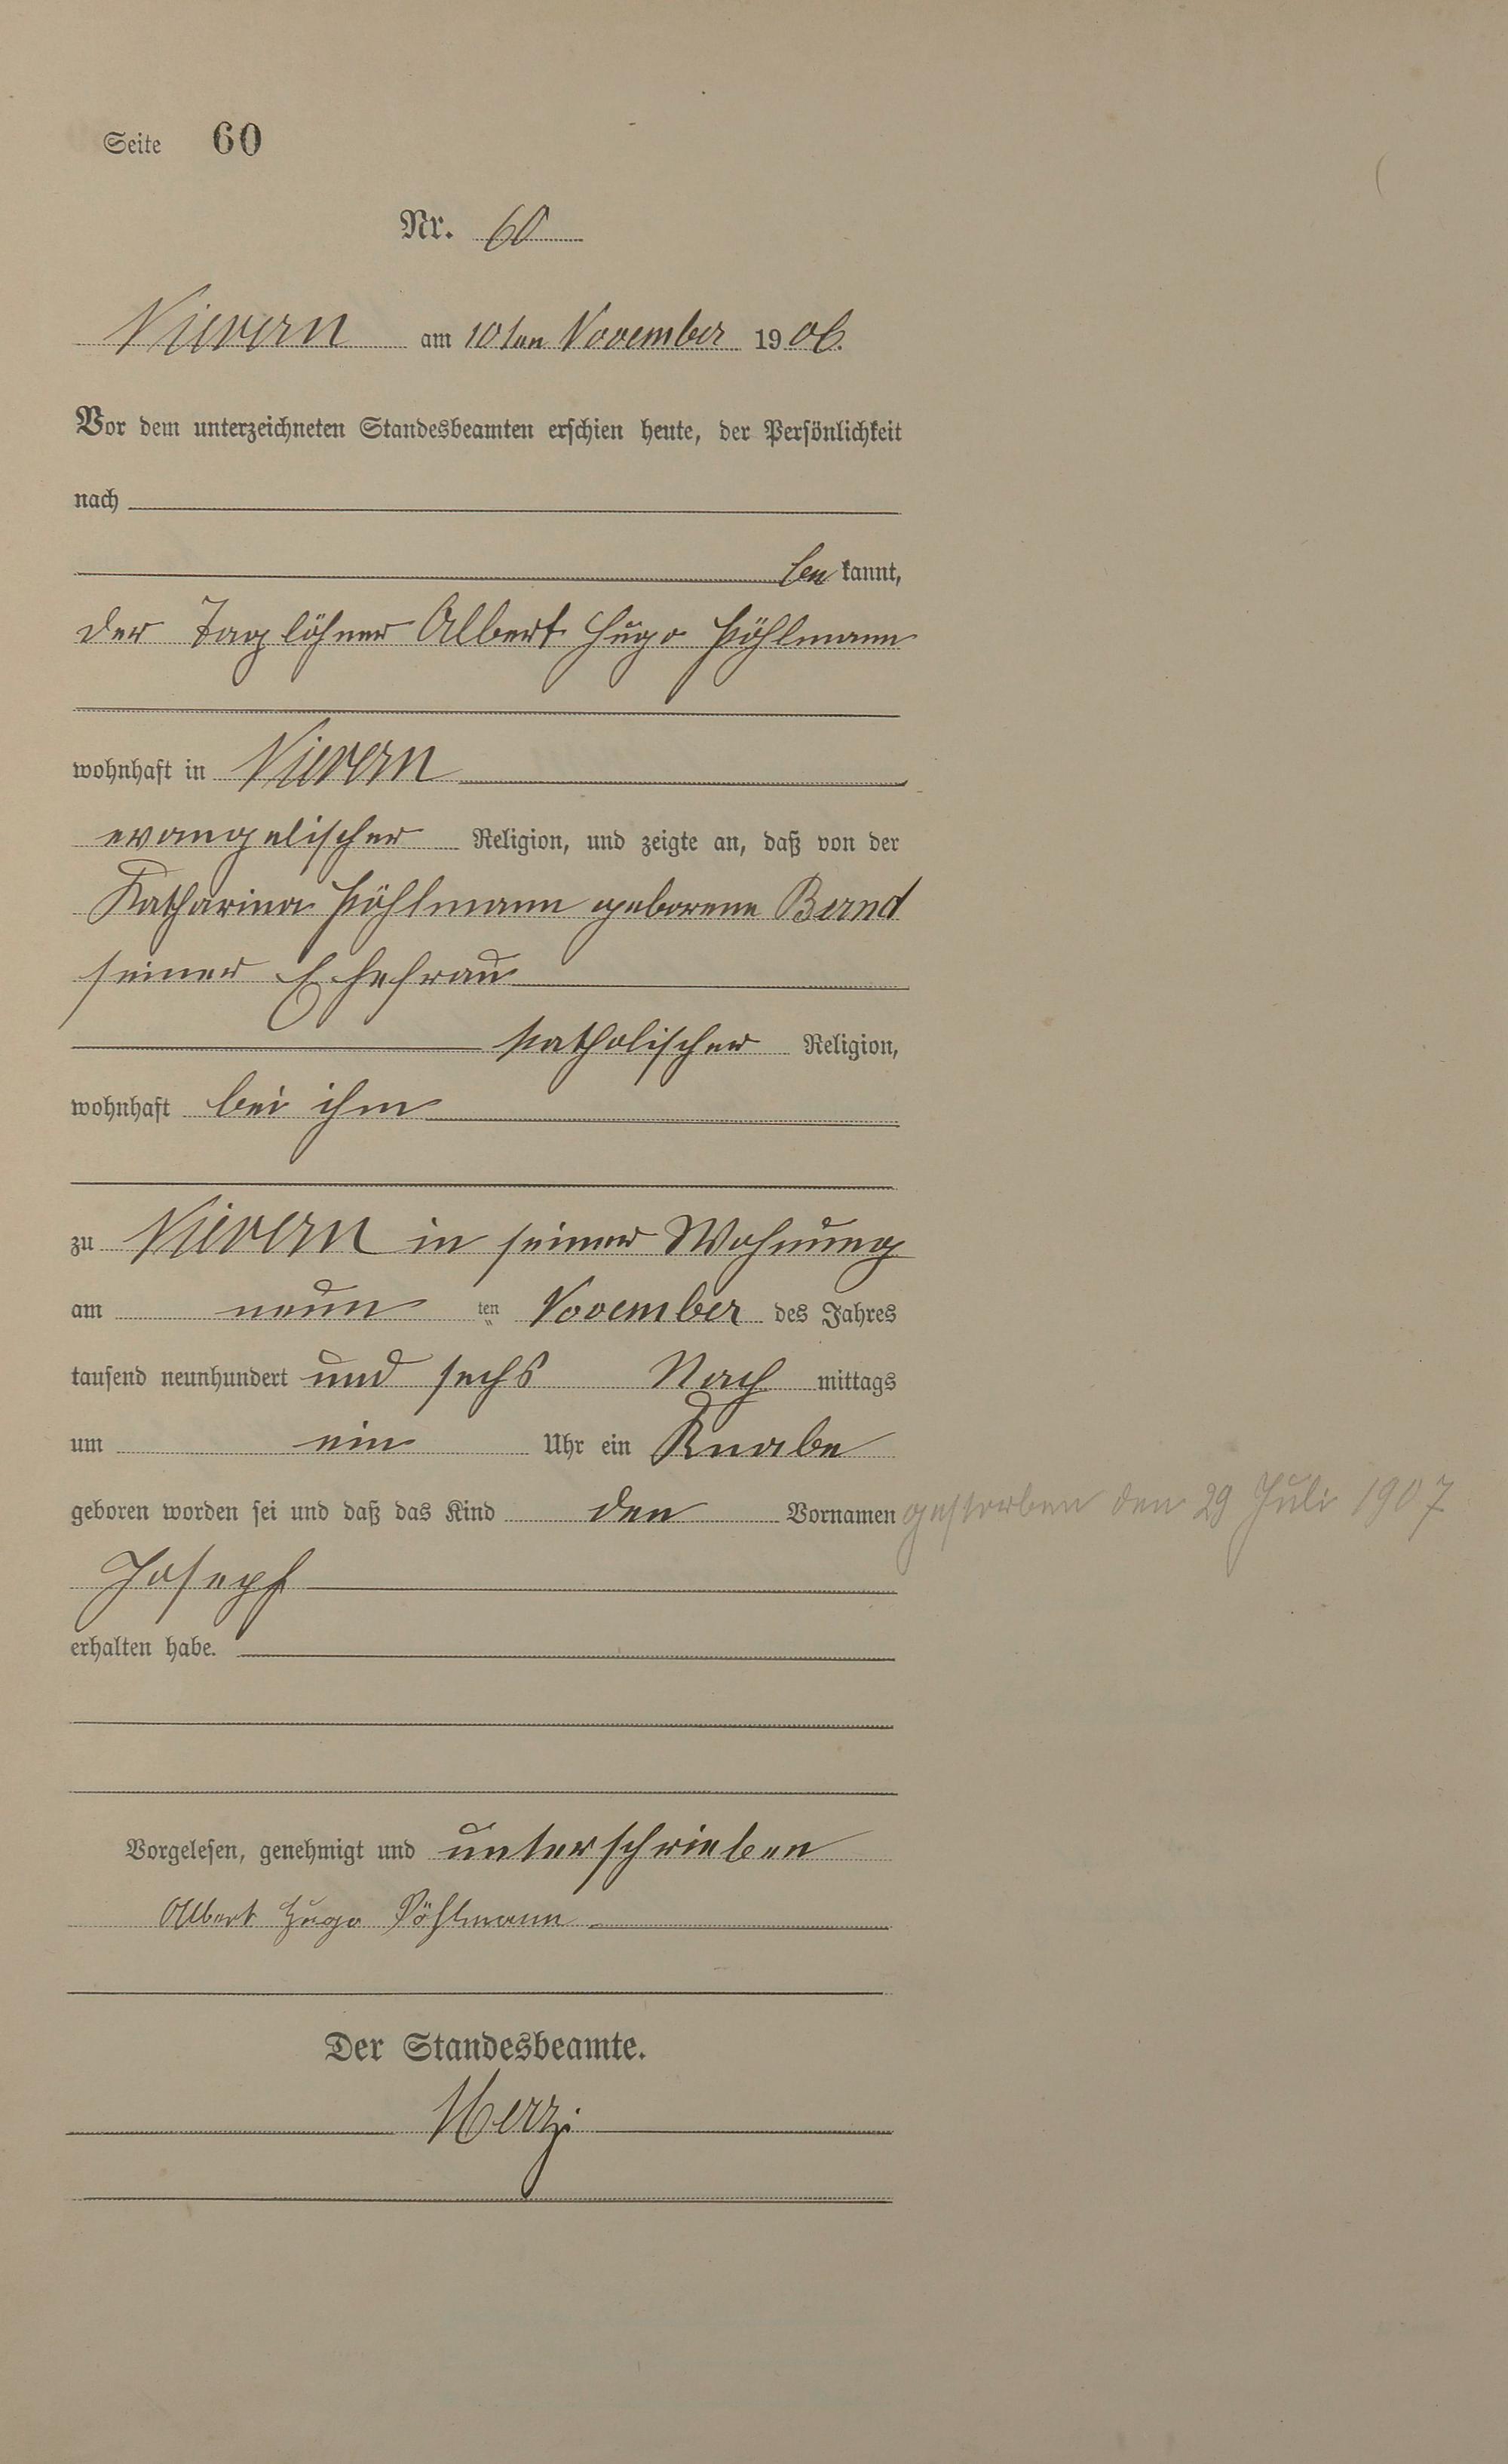 Seite 60
Nr. 60
Nievern am 10ten November 1906.
Vor dem unterzeichneten Standesbeamten erschien heute, der Persönlichkeit
nach
bekannt,
der Taglöhner Albert Hugo Pöhlmann
wohnhaft in Nievern
evangelischer Religion, und zeigte an, daß von der
Katharina Pöhlmann geborene Bernd
seiner Ehefrau
katholischer Religion,
wohnhaft bei ihm
zu Nievern in seiner Wohnung
am neun ten November des Jahres
tausend neunhundert und sechs Nach mittags
um ein Uhr ein Knabe
geboren worden sei und daß das Kind den Vornamen gestorben den 29 Juli 1907
Joseph
erhalten habe.
Vorgelesen, genehmigt und unterschrieben
Albert Hugo Pöhlmann
Der Standesbeamte.